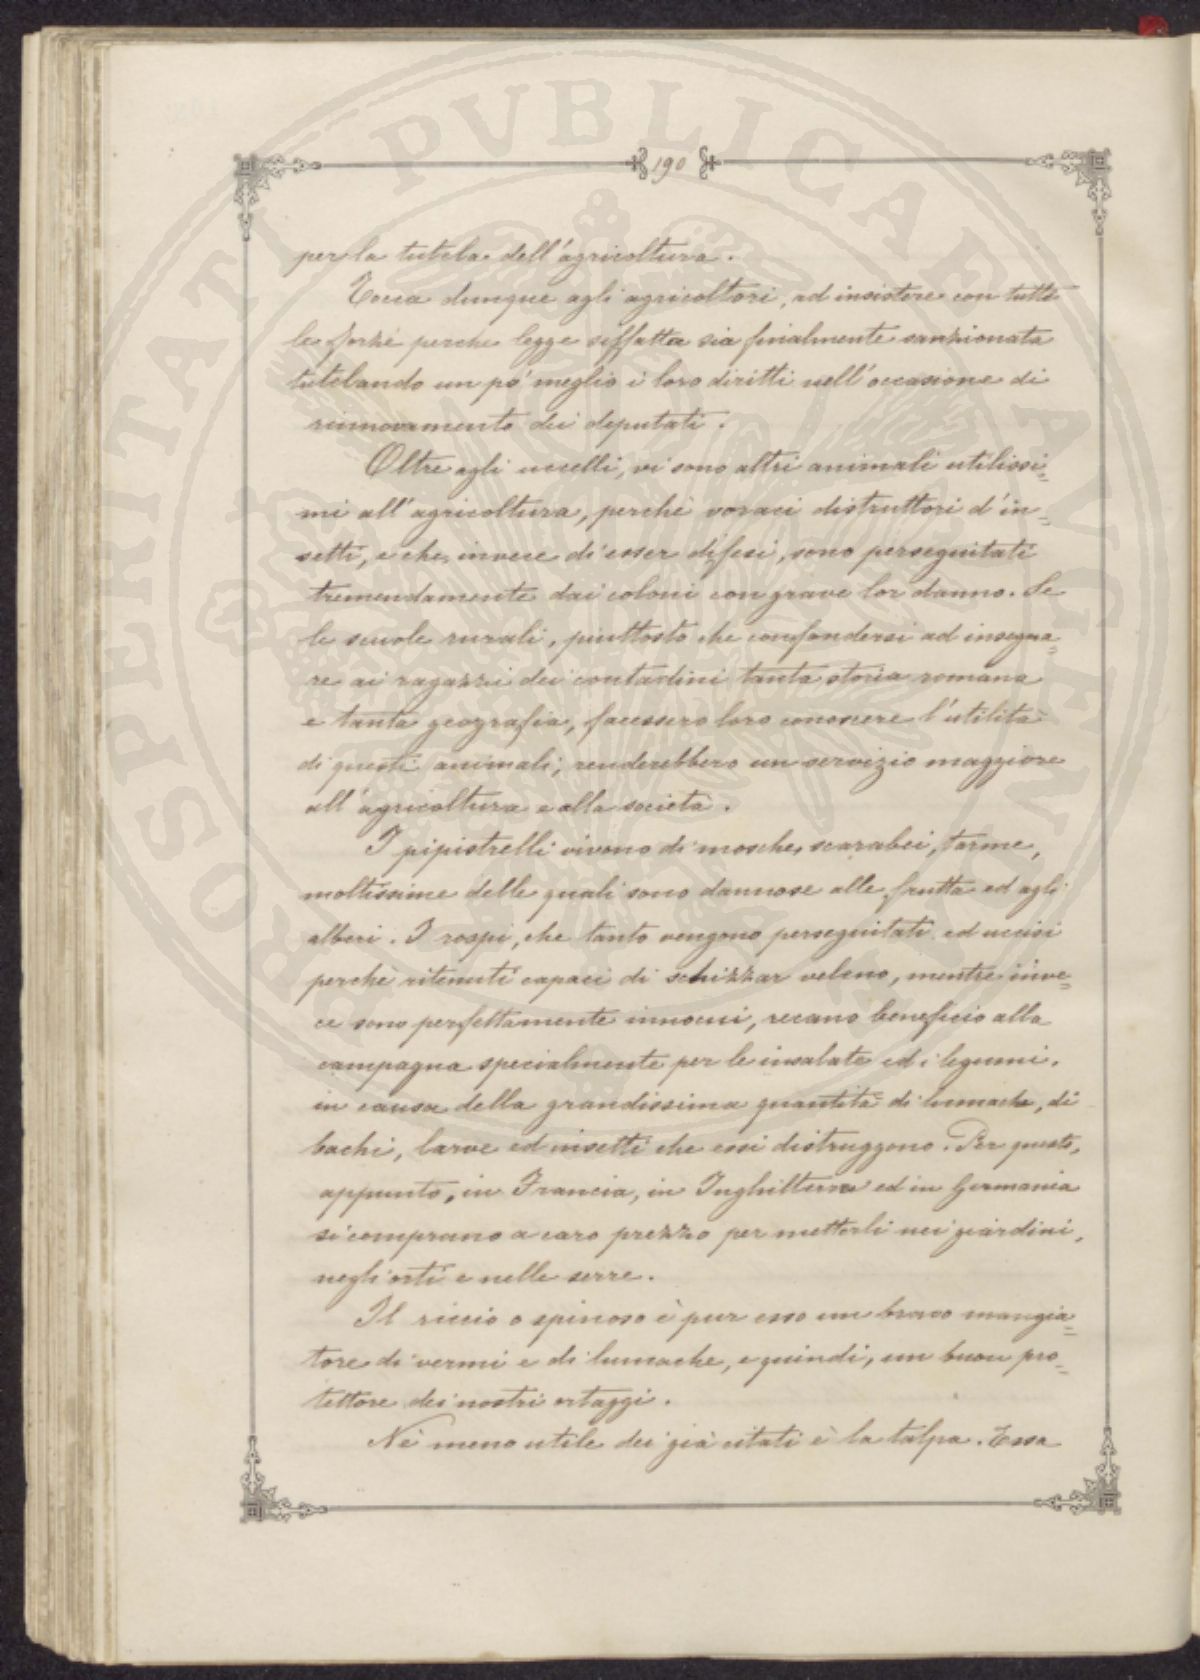 190
per la tutela dell'agricoltura.
Tocca dunque agli agricoltori, ad insistere con tutte
le forze perche legge siffatta sia finalmente sanzionata
tutelando un po' meglio i loro diritti nell'occasione di
rinnovamento dei deputati.
Oltre agli uccelli, vi sono altri animali utilissi=
mi all'agricoltura, perchè voraci distruttori d'in=
setti, e che, invece di esser difesi, sono perseguitati
tremendamente dai coloni con grave lor danno. Se
le scuole rurali, piuttosto che confondersi ad insegna=
re ai ragazzi dei contadini tanta storia romana
e tanta geografia, facessero loro conoscere l'utilità
di questi animali, renderebbero un servizio maggiore
all'agricoltura e alla società.
I pipistrelli vivono di mosche, scarabei, tarme,
moltissime delle quali sono dannose alle frutta ed agli
alberi. I rospi, che tanto vengono perseguitati ed uccisi
perchè ritenuti capaci di schizzar veleno, mentre inve=
ce sono perfettamente innocui, recano beneficio alla
campagna specialmente per le insalate ed i legumi,
in causa della grandissima quantità di lumache, di
bachi, larve ed insetti che essi distruggono. Per questo,
appunto, in Francia, in Inghilterra ed in Germania
si comprano a caro prezzo per metterli nei giardini,
negli orti e nelle serre.
Il riccio o spinoso è pur esso un bravo mangia=
tore di vermi e di lumache, e quindi, un buon pro=
tettore dei nostri ortaggi.
Nè meno utile dei già citati è la talpa. Essa
PROSPERITATI PVBLICAE AVGENDAE